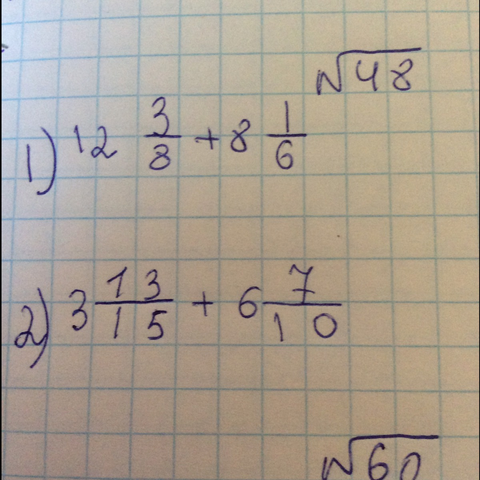 √48
1) 12 3/8 + 8 1/6
2) 3 13/15 + 6 7/10
√60